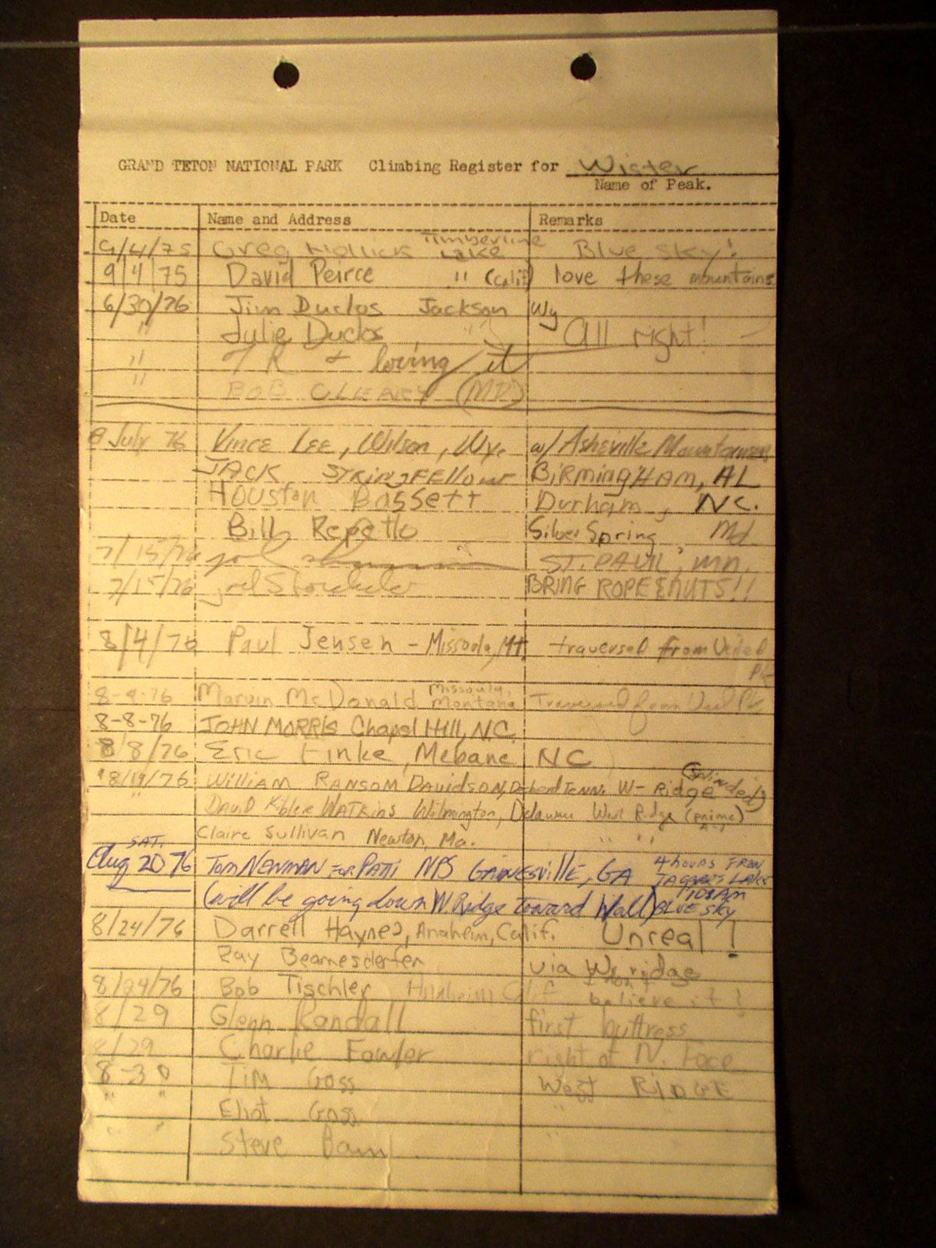 GRAND TETON NATIONAL PARK Climbing Register for Wister
Name of Peak.
Date Name and Address Remarks
9/4/75 Greg Timberline Lake Blue sky!
9/4/75 David Peirce " (Calif) love these mountains
6/30/76 Jim Duclos Jackson Wy
" Julie Duclos All right!
" & loving it
" BOB (MD)
8 July 76 Vince Lee, Wilson, Wy. w/ Asheville
JACK STRINGFELLOW BIRMINGHAM, AL
HOUSTON BASSETT Durham, NC.
Bill Repetto Silver Spring Md
7/15/76 ST. PAUL, MN.
7/15/76 BRING ROPE & NUTS!!
8/4/76 Paul Jensen - Missoula, Mt. traversed from Veiled Pk
8-4-76 Marvin McDonald Missoula, Montana Traversed from Veiled Pk
8-8-76 JOHN MORRIS Chapel Hill, NC.
8/8/76 Eric Finke, Mebane NC
8/19/76 WILLIAM RANSOM DAVIDSON, W- Ridge (Winded)
" DAVID WATKINS Wilmington, Delaware West Ridge (prime)
Claire Sullivan Newton, Ma. " "
SAT.
Aug 20 76 TOM NEWMAN FOR PATTI NPS GAINESVILLE, GA 4 hours FROM TAGGART LAKE
(will be going down W Ridge toward Wall) 1105AM BLUE SKY
8/24/76 Darrell Haynes, Anaheim, Calif. Unreal!
Ray Beamesderfer via W. ridge
8/24/76 Bob Tischler Anaheim Calif I don't believe it!
8/29 Glenn Randall first buttress
8/29 Charlie Fowler right of N. Face
8-30 TIM Goss West RIDGE
" " Eliot Goss "
" " Steve